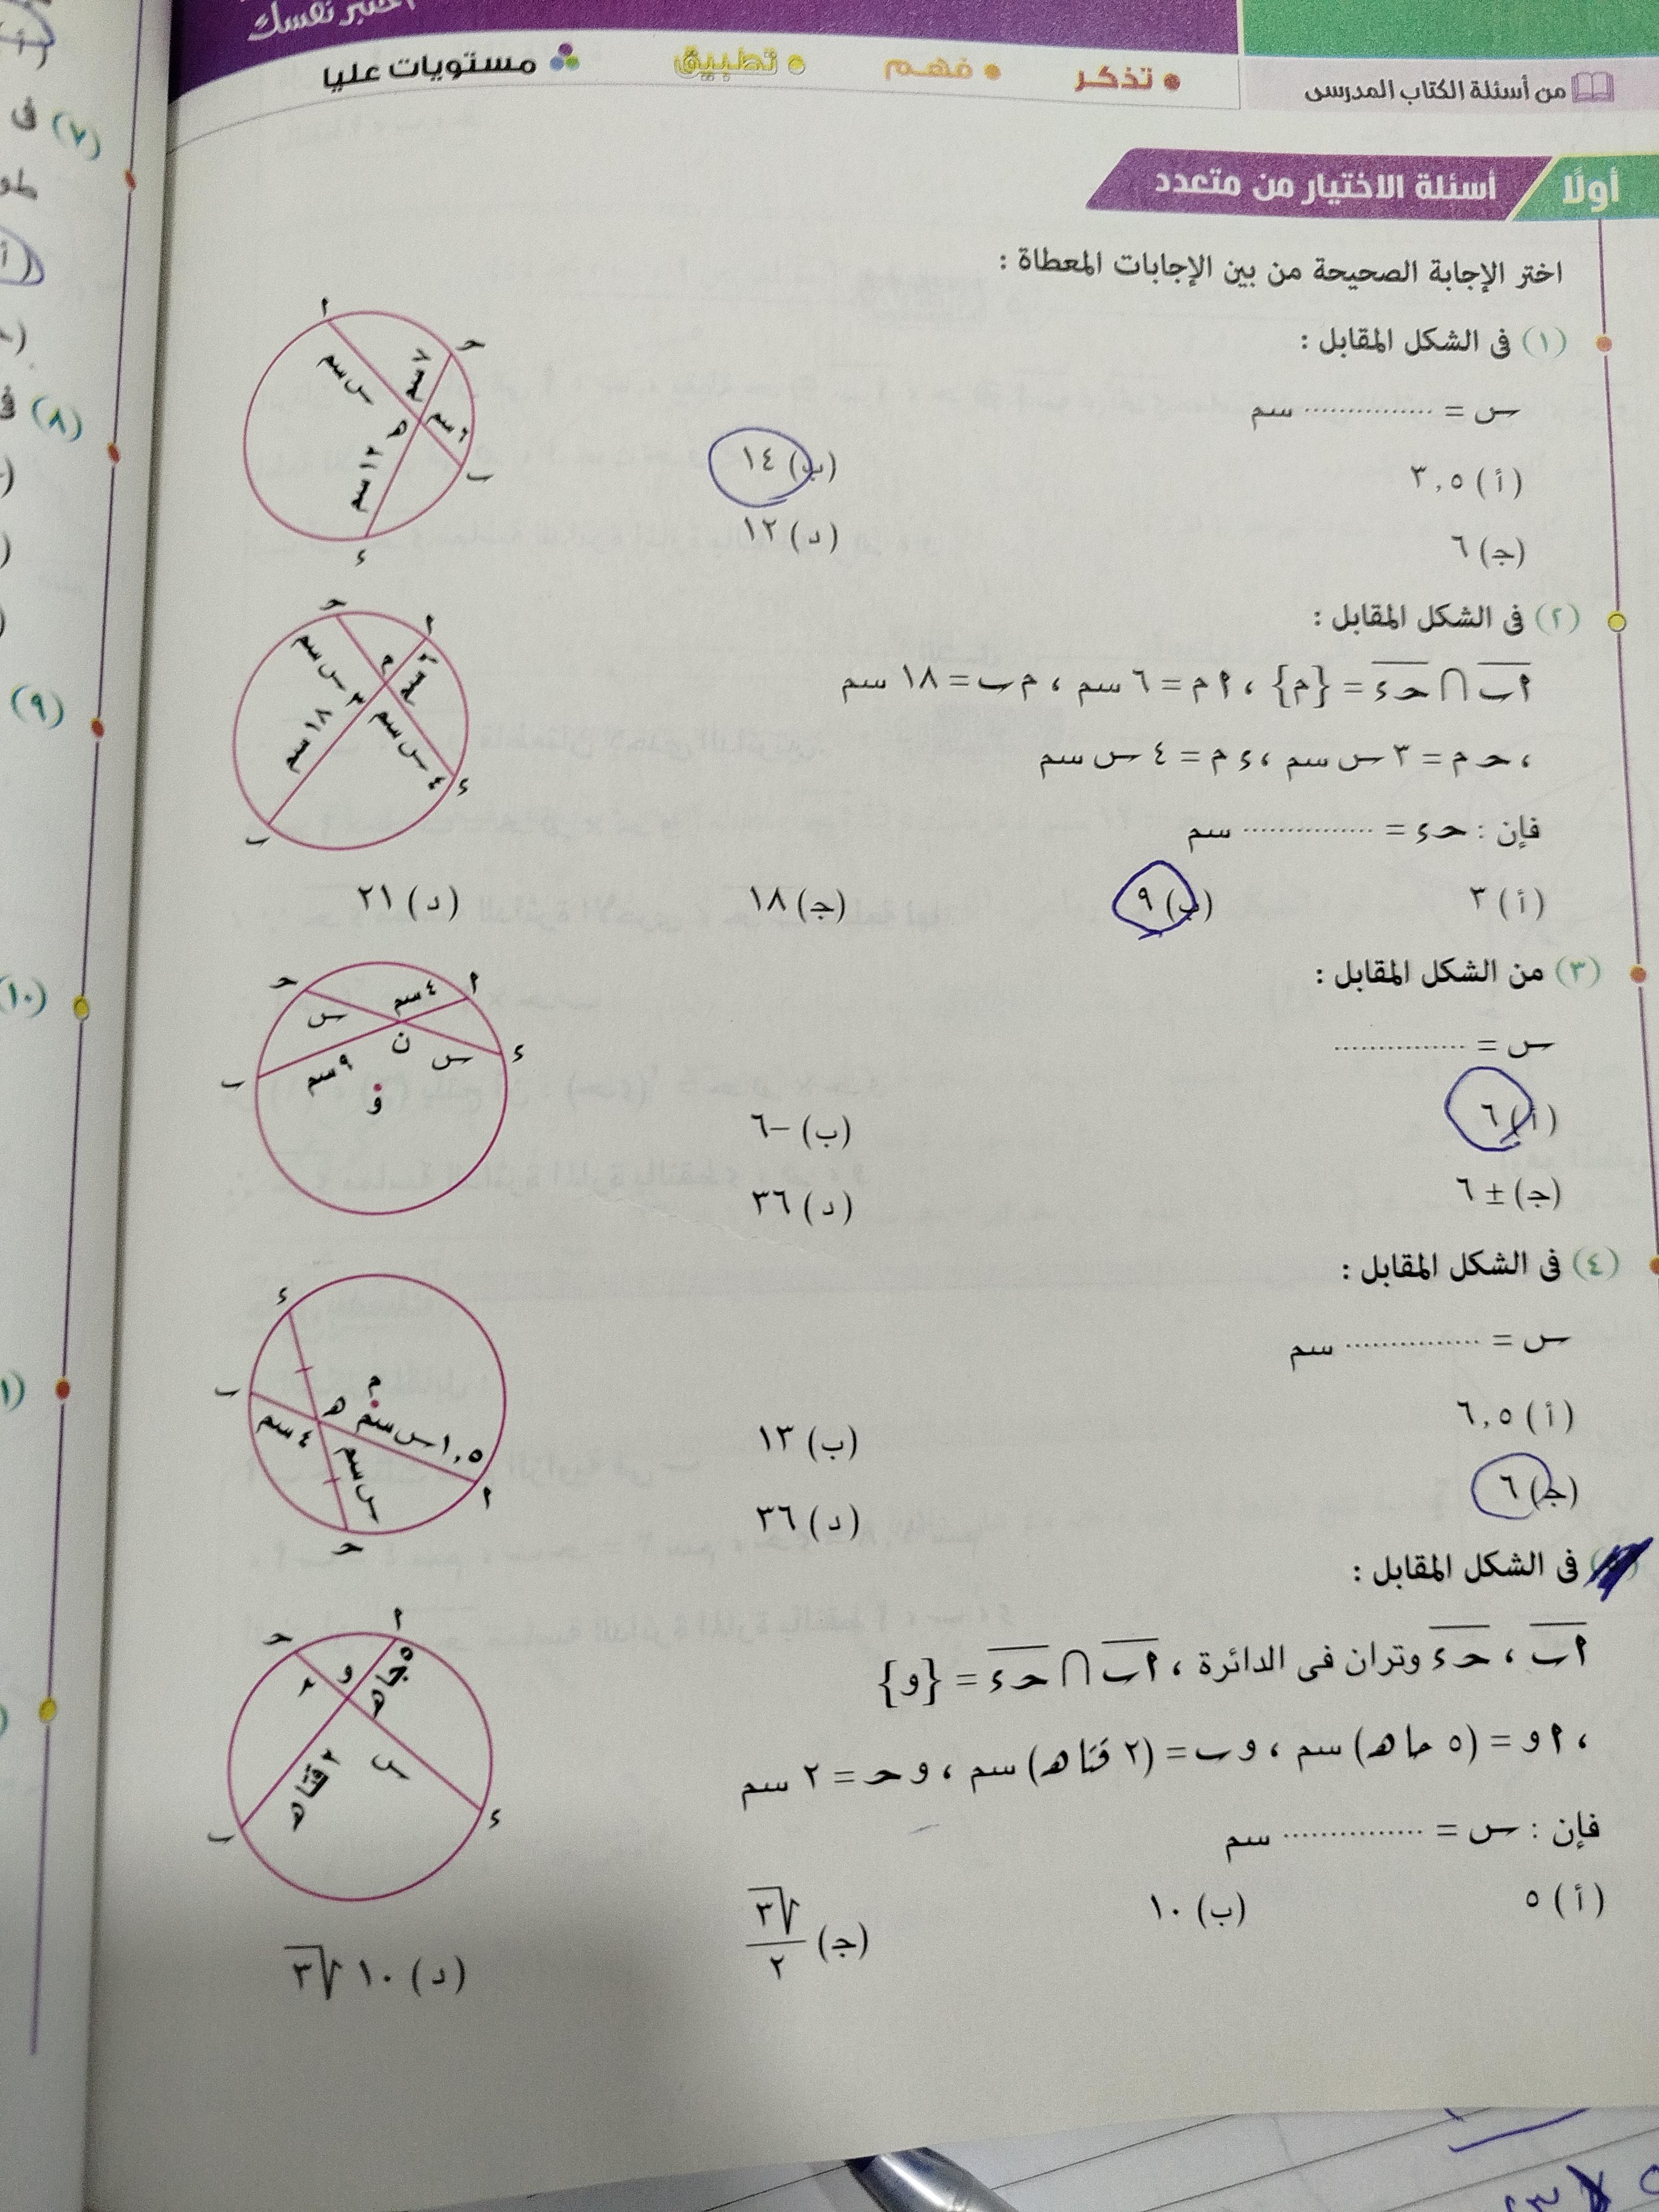 من أسئلة الكتاب المدرسى • تذكر • فهم • تطبيق مستويات عليا
أولًا أسئلة الاختيار من متعدد
اختر الإجابة الصحيحة من بين الإجابات المعطاة :
(١) فى الشكل المقابل :
س = ............... سم
(أ) ٣,٥ (ب) ١٤
(جـ) ٦ (د) ١٢
ا حـ س سم ٧ سم ٦ سم هـ ١٢ سم ب ء
(٢) فى الشكل المقابل :
اب ∩ حـ ء = {م} ، ام = ٦ سم ، م ب = ١٨ سم
، حـ م = ٣ س سم ، ء م = ٤ س سم
فإن : حـ ء = ............... سم
(أ) ٣ (ب) ٩ (جـ) ١٨ (د) ٢١
حـ ا ٣ س سم م ٦ سم ١٨ سم ٤ س سم ء ب
(٣) من الشكل المقابل :
س = ...............
(أ) ٦ (ب) –٦
(جـ) ± ٦ (د) ٣٦
حـ ا ٤ سم س ن س ء ٩ سم ب و
(٤) فى الشكل المقابل :
س = ............... سم
(أ) ٦,٥ (ب) ١٣
(جـ) ٦ (د) ٣٦
ء م ب هـ ١,٥ س سم ٤ سم س سم ا حـ
فى الشكل المقابل :
اب ، حـ ء وتران فى الدائرة ، اب ∩ حـ ء = {و}
، او = (٥ حا هـ) سم ، و ب = (٢ قتا هـ) سم ، و حـ = ٢ سم
فإن : س = ............... سم
(أ) ٥ (ب) ١٠ (جـ) √٣/٢ (د) ١٠√٣
حـ ا ٢ و ٥ حا هـ ٢ قتا هـ س ب ء
(٧)
(٨)
(٩)
(١٠)